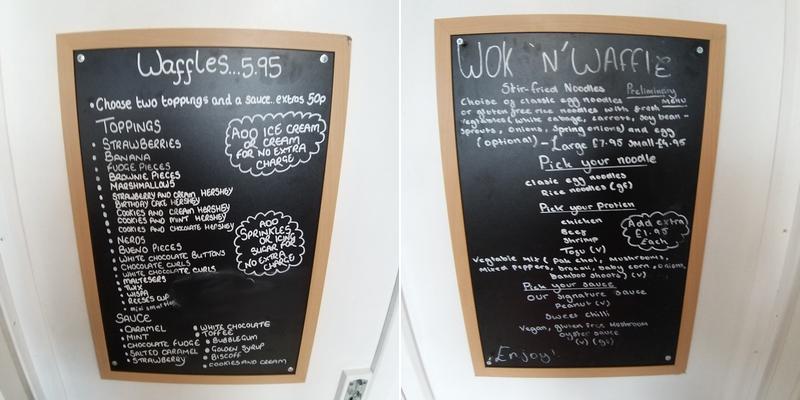 Waffles...5.95
• Choose two toppings and a sauce.. extras 50p
TOPPINGS
• STRAWBERRIES
• BANANA
• FUDGE PIECES
• BROWNIE PIECES
• MARSHMALLOWS
• STRAWBERRY AND CREAM HERSHEY
• BIRTHDAY CAKE HERSHEY
• COOKIES AND CREAM HERSHEY
• COOKIES AND MINT HERSHEY
• COOKIES AND CHOCOLATE HERSHEY
• NERDS
• BUENO PIECES
• WHITE CHOCOLATE BUTTONS
• CHOCOLATE CURLS
• WHITE CHOCOLATE CURLS
• MALTESERS
• TWIX
• WISPA
• REESES CUP
• mini smarties
ADD ICE CREAM
OR CREAM
FOR NO EXTRA
CHARGE
ADD
SPRINKLES
OR ICING
SUGAR FOR
NO EXTRA
CHARGE
SAUCE
• CARAMEL
• MINT
• CHOCOLATE FUDGE
• SALTED CARAMEL
• STRAWBERRY
• WHITE CHOCOLATE
• TOFFEE
• BUBBLEGUM
• GOLDEN SYRUP
• BISCOFF
• COOKIES AND CREAM
WOK 'N' WAFFLE
Stir-fried Noodles Preliminary
Choise of classic egg noodles menu
or gluten free rice noodles with fresh
vegetables( white cabage, carrots, soy bean-
sprouts, onions, spring onions) and egg
(optional) - Large £7.95 Small £4.95
Pick your noodle
clasic egg noodles
Rice noodles (gf)
Pick your protien
chicken
Beef
Shrimp
Tofu (v)
Add extra
£1.95
Each
Vegtable mix ( Pak choi, Mushrooms,
Mixed peppers, brocoli, baby corn, Onions,
bamboo shoots) (v)
Pick your sauce
Our signature sauce
Peanut (v)
Sweet chilli
Vegan, gluten free mushroom
oyster sauce
(v) (gf)
Enjoy!